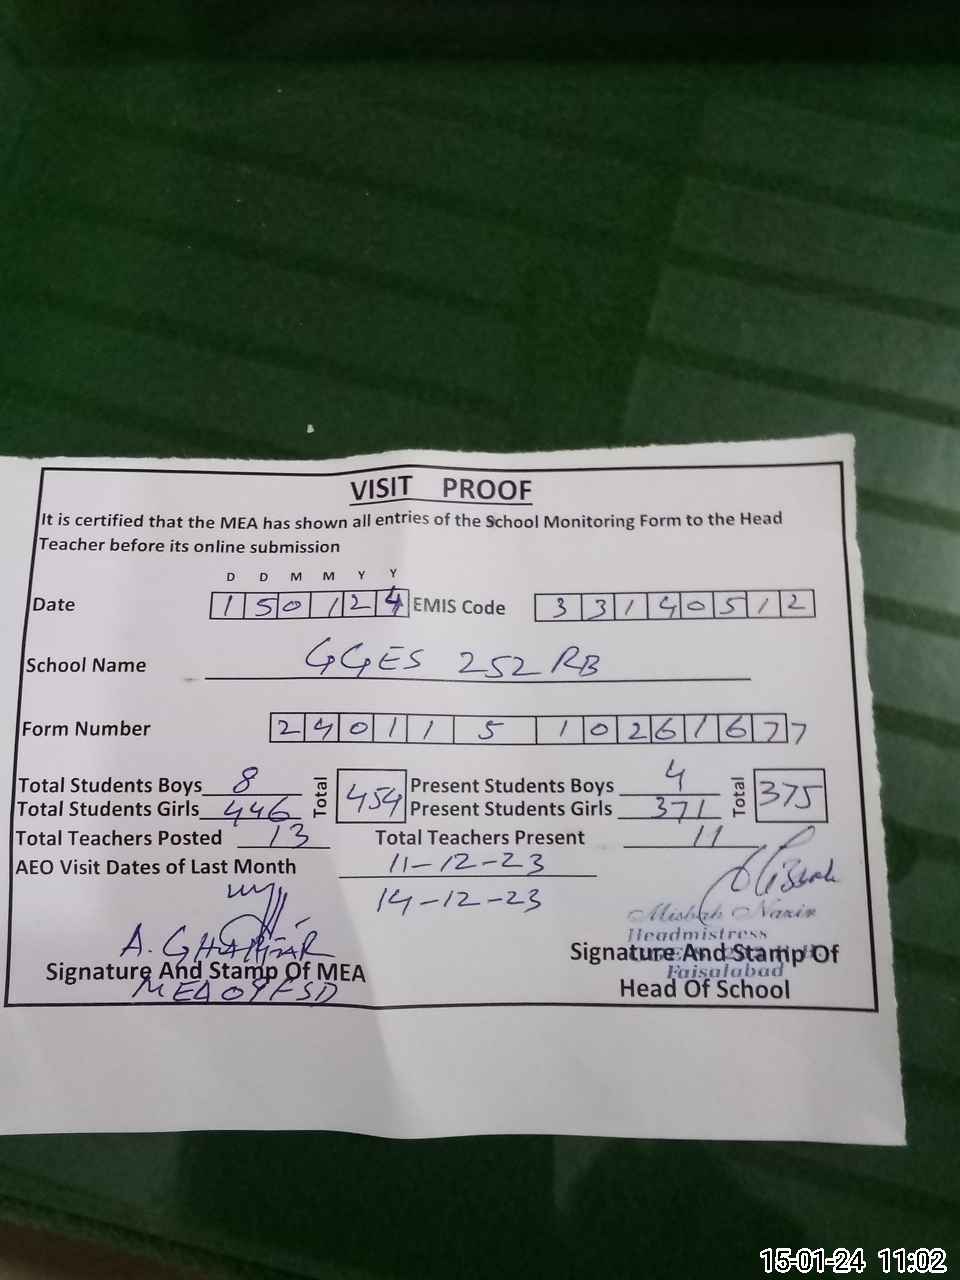 VISIT PROOF
It is certified that the MEA has shown all entries of the School Monitoring Form to the Head
Teacher before its online submission
D D M M Y Y
Date 1 5 0 1 2 4 EMIS Code 3 3 1 4 0 5 1 2
School Name GGES 252 RB
Form Number 2 4 0 1 1 5 1 0 2 6 1 6 7 7
Total Students Boys 8 Total 454 Present Students Boys 4 Total 375
Total Students Girls 446 Present Students Girls 371
Total Teachers Posted 13 Total Teachers Present 11
AEO Visit Dates of Last Month 11-12-23
14-12-23
Misbah Nazir
A. GHAFFAR Headmistress
Signature And Stamp Of MEA Signature And Stamp Of
Faisalabad
MEA 09 FSD Head Of School
15-01-24 11:02